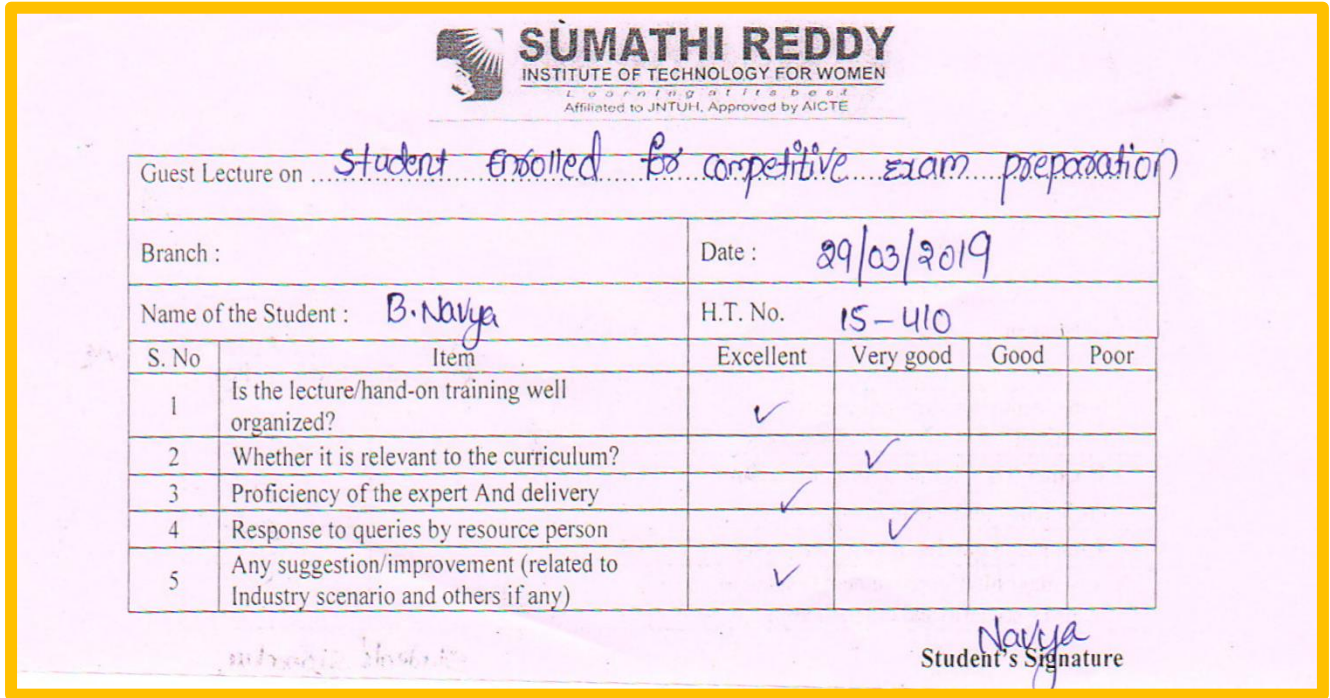 SUMATHI REDDY
INSTITUTE OF TECHNOLOGY FOR WOMEN
Learning at its best
Affiliated to JNTUH, Approved by AICTE
Guest Lecture on ..... Student Enrolled for competitive Exam preparation
Branch :
Date : 29/03/2019
Name of the Student : B. Navya
H.T. No. 15-410
S. No Item Excellent Very good Good Poor
1 Is the lecture/hand-on training well
organized? ✓
2 Whether it is relevant to the curriculum? ✓
3 Proficiency of the expert And delivery ✓
4 Response to queries by resource person ✓
5 Any suggestion/improvement (related to
Industry scenario and others if any) ✓
Navya
Student's Signature